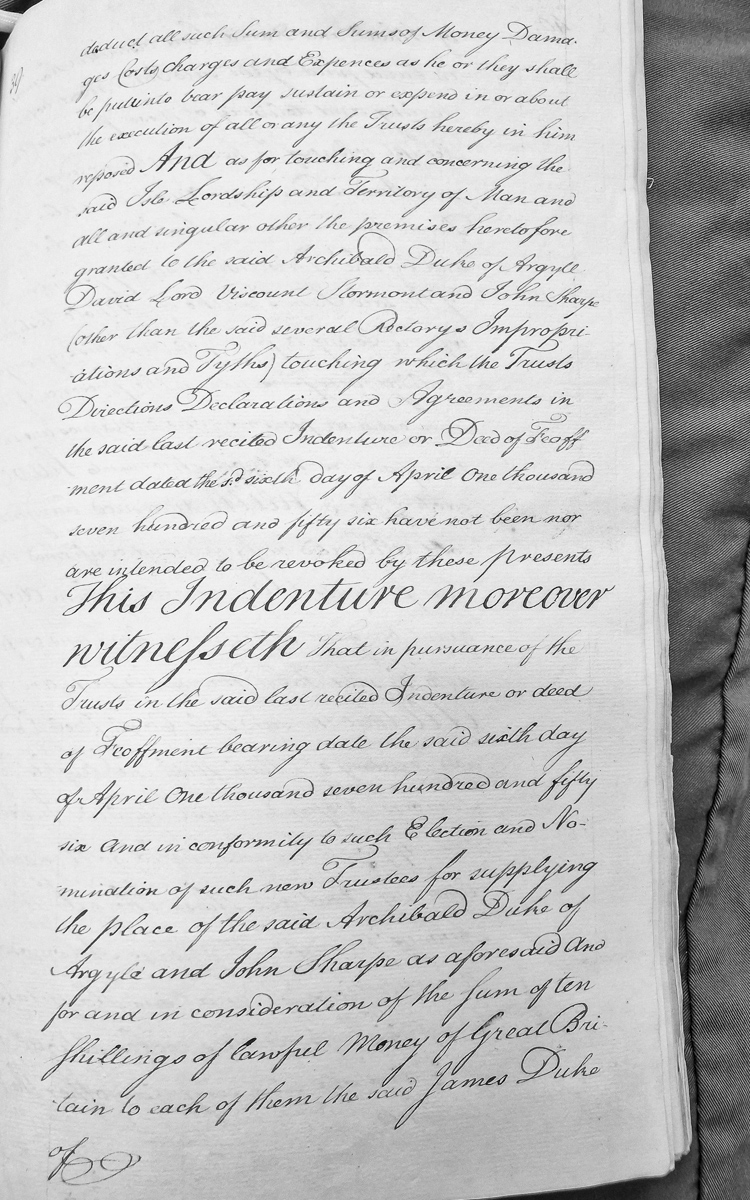 39
deduct all such Sum and Sums of Money Dama-
ges Costs Charges and Expences as he or they shall
be put unto bear pay sustain or expend in or about
the execution of all or any the Trusts hereby in him
reposed And as for touching and concerning the
said Isle Lordship and Territory of Man and
all and singular other the premises heretofore
granted to the said Archibald Duke of Argyll
David Lord Viscount Stormont and John Sharpe
(other than the said several Rectorys Impropri-
ations and Tyths) touching which the Trusts
Directions Declarations and Agreements in
the said last recited Indenture or Deed of Feoff
ment dated the sd. sixth day of April One thousand
seven hundred and fifty six have not been nor
are intended to be revoked by these presents
This Indenture moreover
witnesseth That in pursuance of the
Trusts in the said last recited Indenture or deed
of Feoffment bearing date the said sixth day
of April One thousand seven hundred and fifty
six And in conformity to such Election and No-
mination of such new Trustees for supplying
the place of the said Archibald Duke of
Argyle and John Sharpe as aforesaid And
for and in consideration of the sum of ten
shillings of lawful Money of Great Bri-
tain to each of them the said James Duke
of